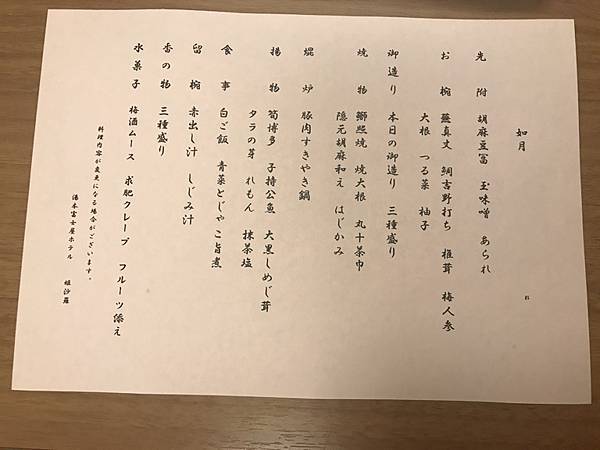 如月
先附 胡麻豆冨 玉味噌 あられ
お椀 蕪真丈 鯛吉野打ち 椎茸 梅人参
大根 つる菜 柚子
御造り 本日の御造り 三種盛り
焼物 鰤照焼 焼大根 丸十茶巾
隠元胡麻和え はじかみ
焜炉 豚肉すきやき鍋
揚物 筍博多 子持公魚 大黒しめじ茸
タラの芽 れもん 抹茶塩
食事 白ご飯 青菜とじゃこ旨煮
留椀 赤出し汁 しじみ汁
香の物 三種盛り
水菓子 梅酒ムース 求肥クレープ フルーツ添え
料理内容が変更になる場合がございます。
湯本富士屋ホテル 姫沙羅